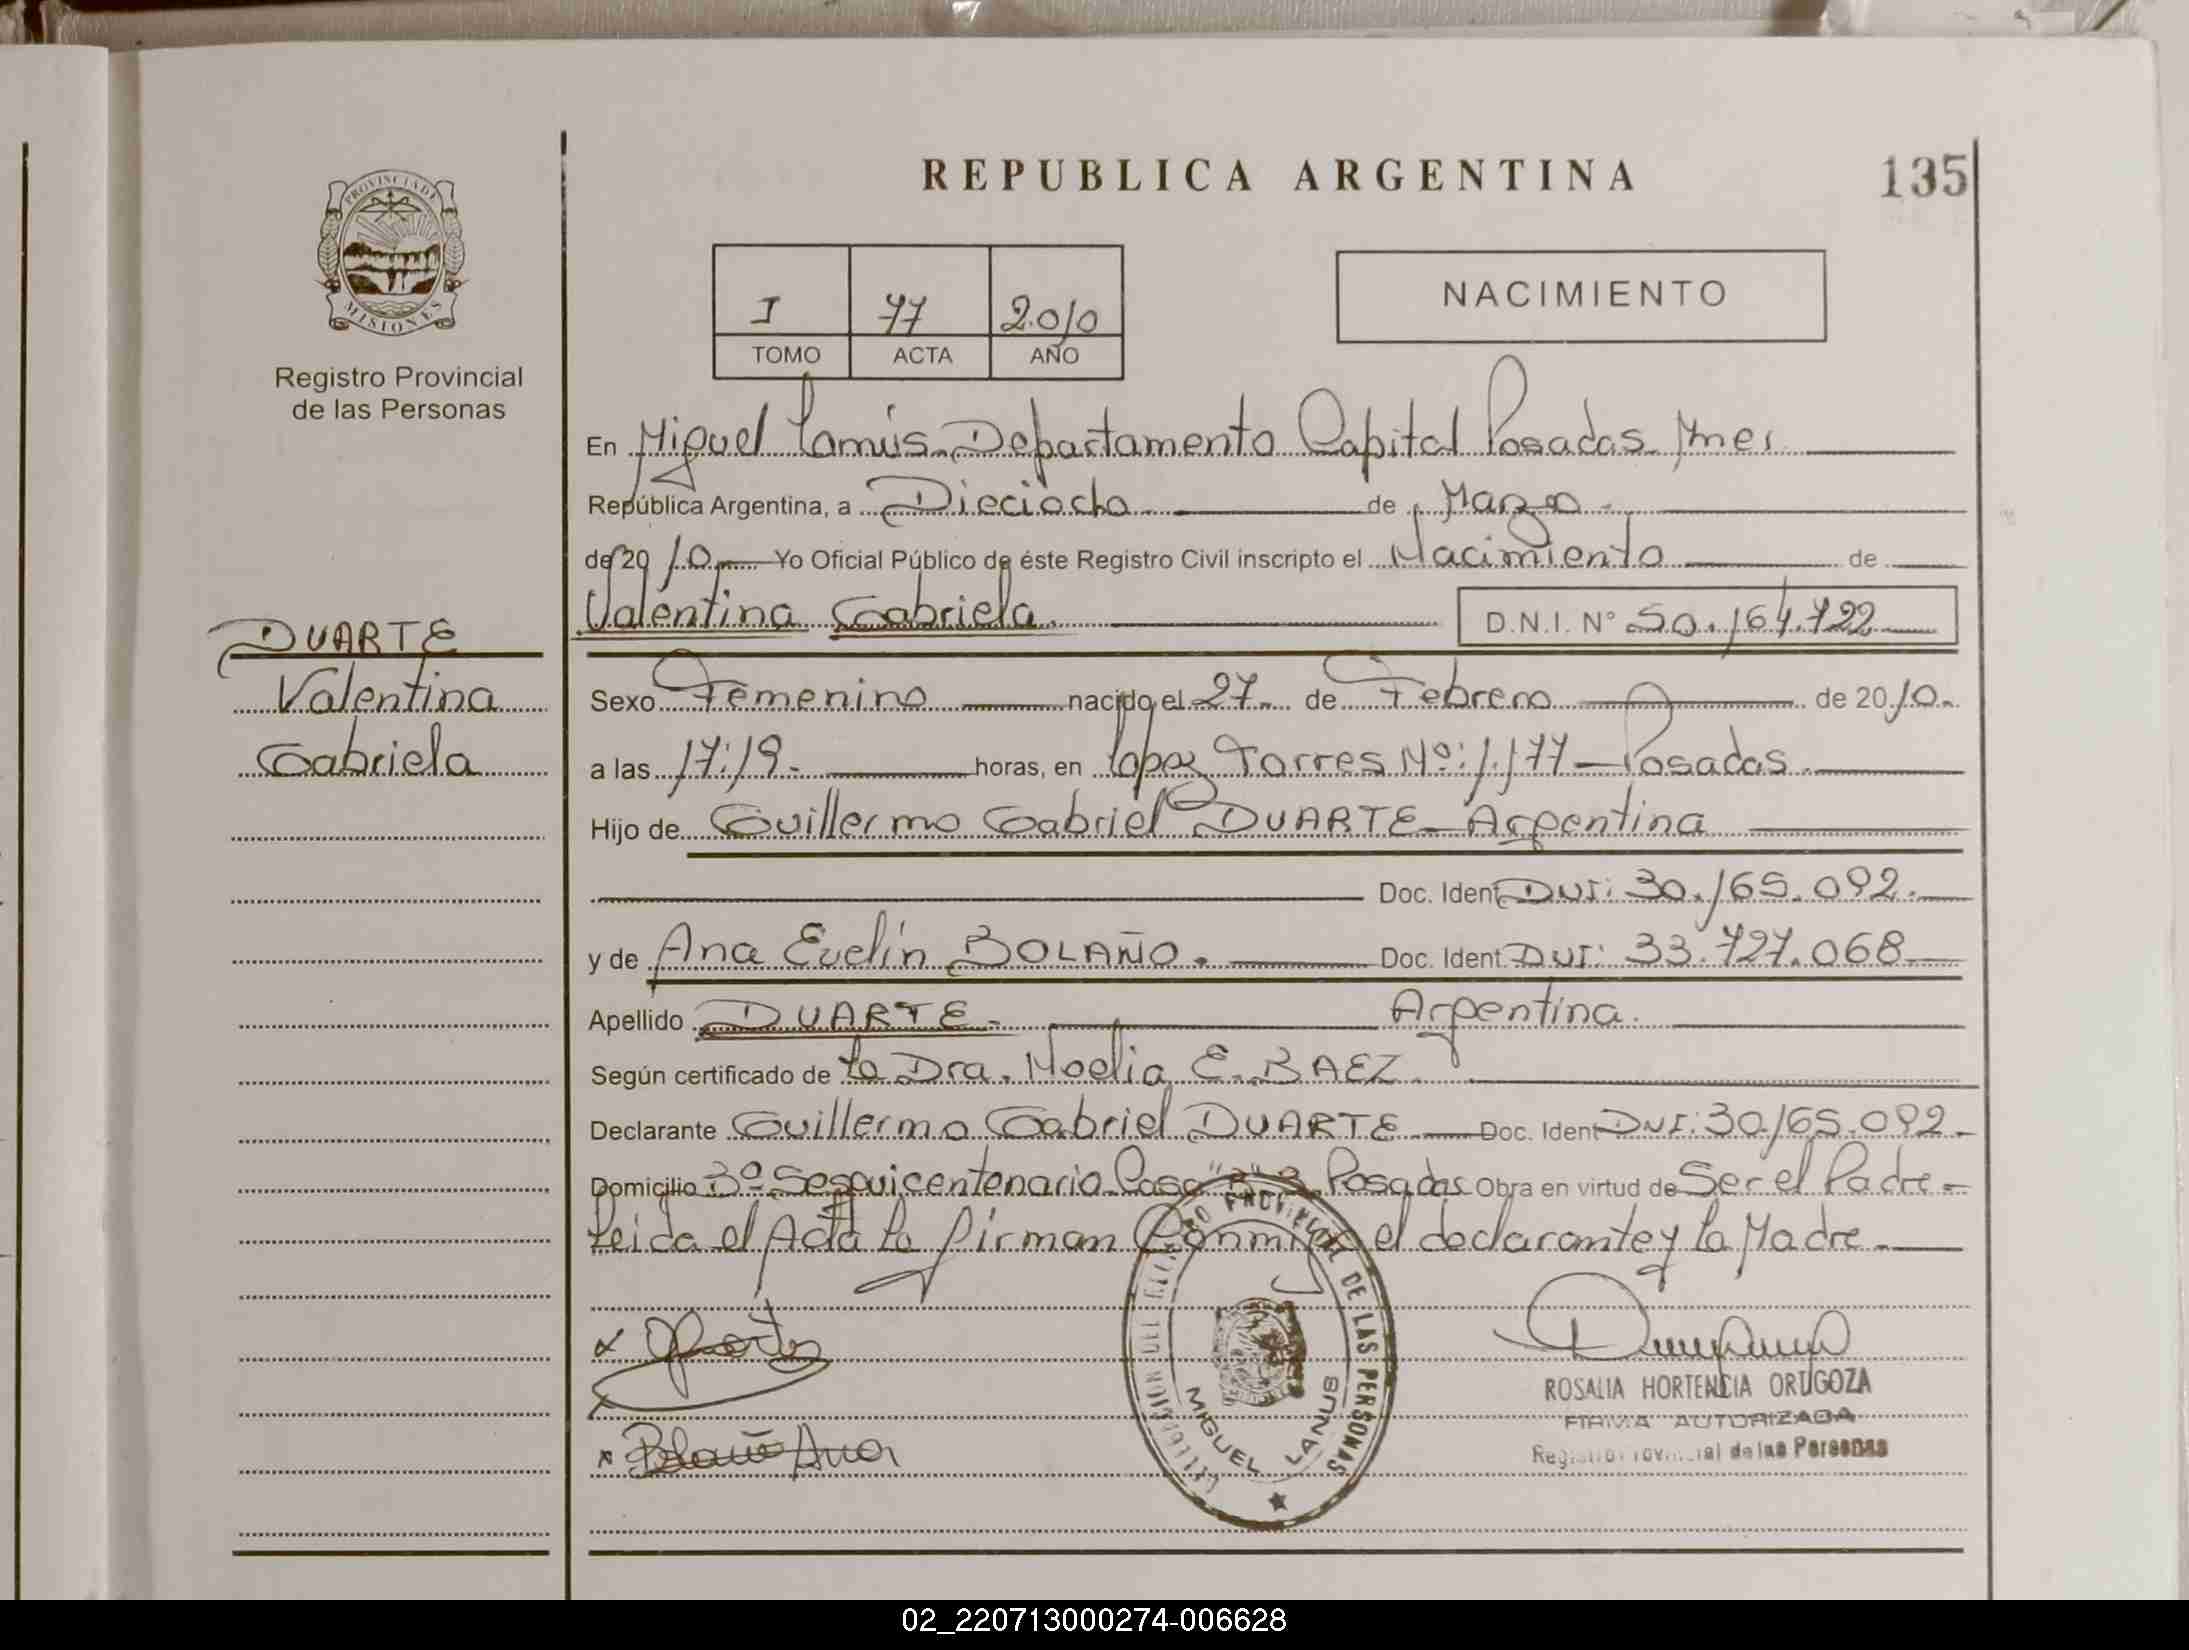 REPUBLICA ARGENTINA
135
PROVINCIA DE
MISIONES
Registro Provincial
de las Personas
I 77 2010
TOMO ACTA AÑO
NACIMIENTO
En Miguel Lanús. Departamento Capital Posadas Mnes
República Argentina, a Dieciocho de Marzo
de 2010 Yo Oficial Público de éste Registro Civil inscripto el Nacimiento de
Valentina Gabriela. D.N.I. N° 50.164.722
DUARTE
Valentina
Gabriela
Sexo Femenino nacido el 27 de Febrero de 2010.
a las 17:19. horas, en Lopez Torres Nº: 1.177 - Posadas.
Hijo de Guillermo Gabriel DUARTE - Argentina
Doc. Ident DNI: 30.165.092.
y de Ana Evelín BOLAÑO. Doc. Ident. DNI: 33.727.068
Apellido DUARTE. Argentina.
Según certificado de La Dra. Noelia E. BAEZ.
Declarante Guillermo Gabriel DUARTE Doc. Ident DNI: 30165.092.
Domicilio Bº Sesquicentenario Casa Posadas Obra en virtud de Ser el Padre -
Leida el Acta la firman Conmigo el declarante y la Madre.
x
x Bolaño Ana
PROVINCIAL DE LAS PERSONAS
MIGUEL LANUS
ROSALIA HORTENCIA ORTIGOZA
FIRMA AUTORIZADA
Registro Provincial de las Personas
02_220713000274-006628